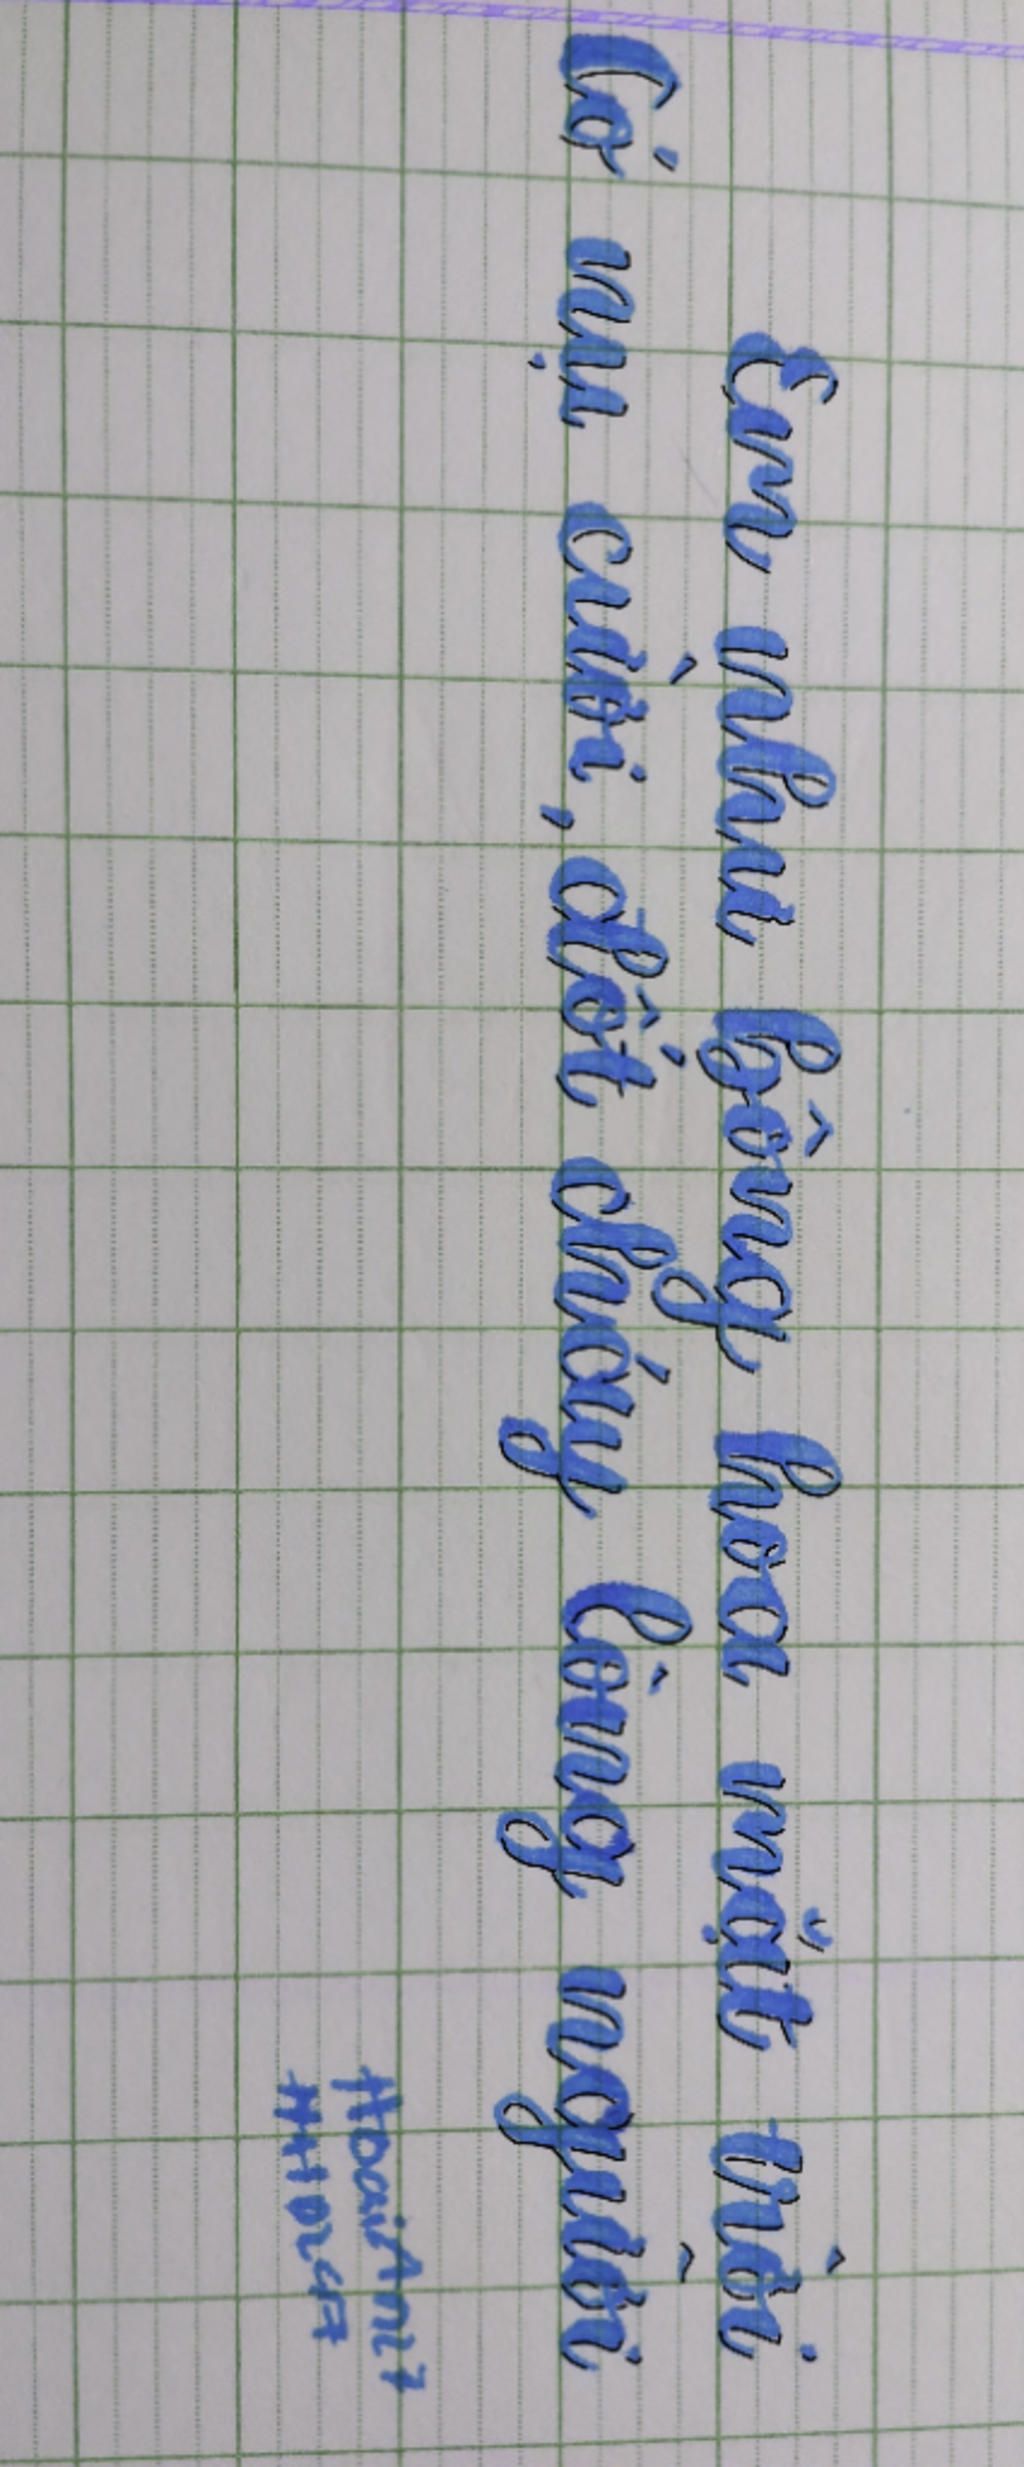 Em như bông hoa mặt trời
Có nụ cười, đốt cháy lòng người